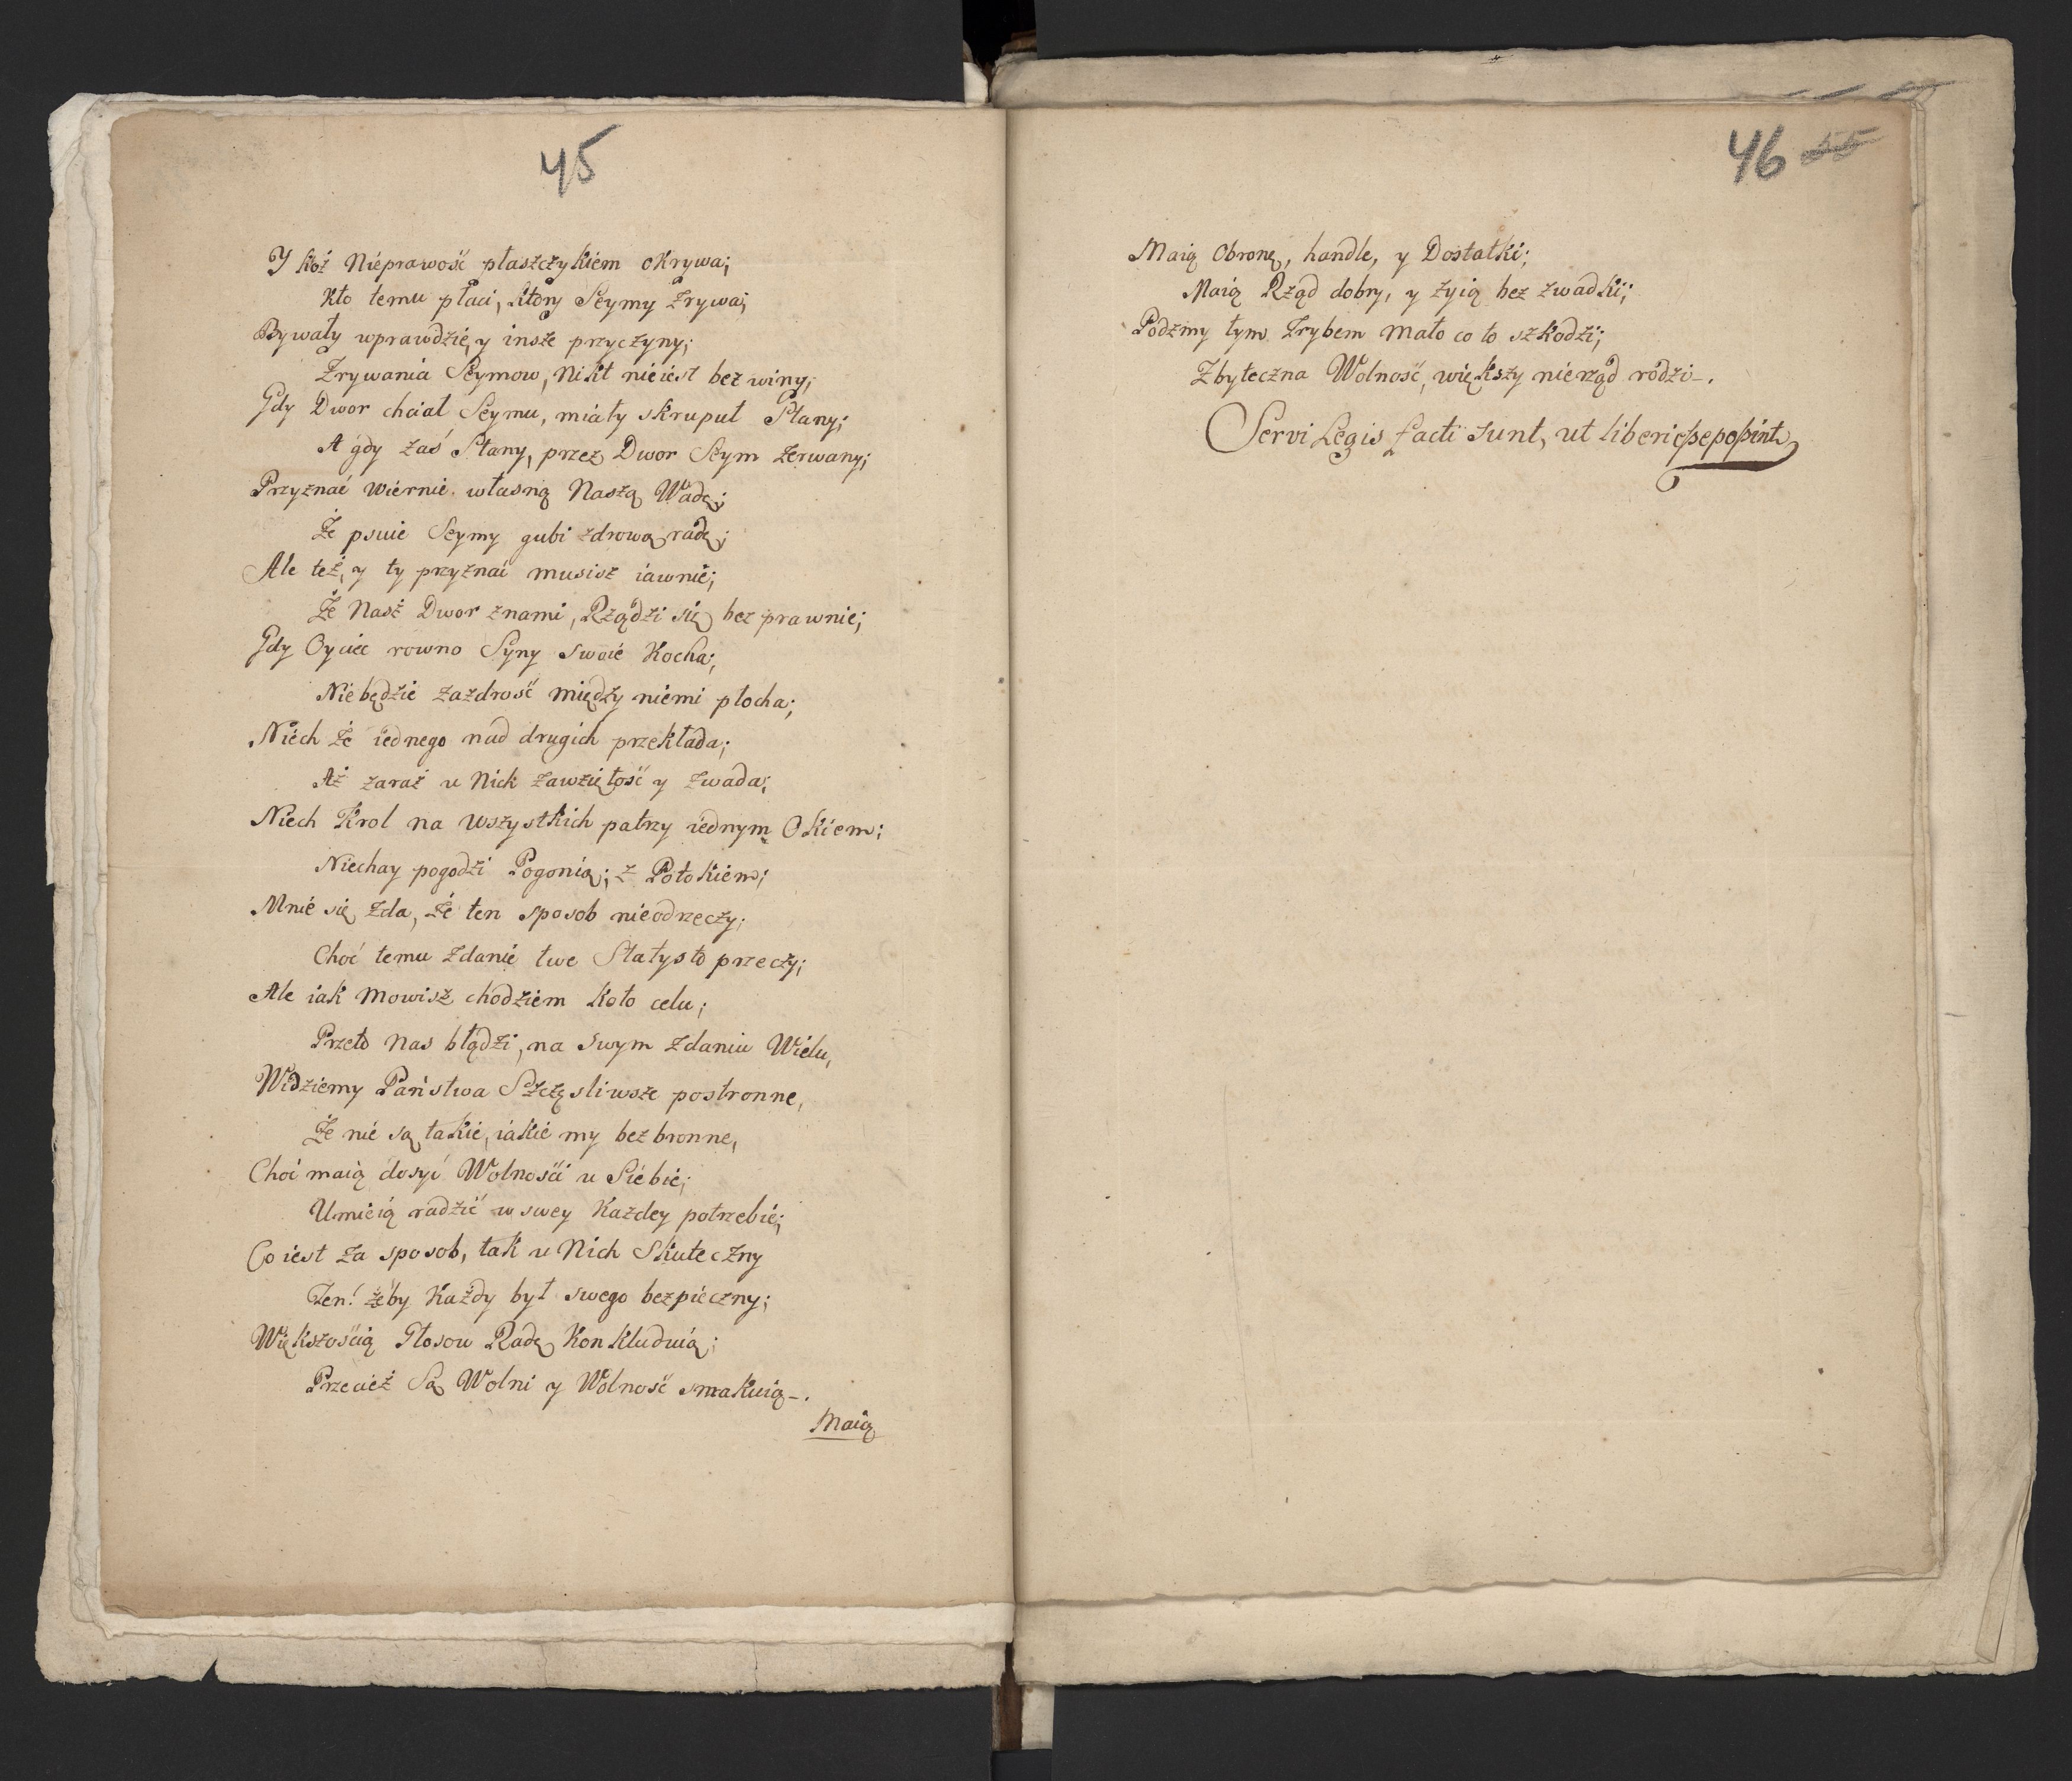 45
Y któż Nieprawość płaszczykiem okrywa;
Kto temu płaci, który Seymy zrywa;
Bywały wprawdzie, y insze przyczyny;
Zrywania Seymow, Nikt nieiest bez winy;
Gdy Dwor chciał Seymu, miały skrupuł Stany;
A gdy zaś Stany, przez Dwor Seym zerwany;
Przyznać wiernie własną Naszą Wadę;
Że psuie Seymy gubi zdrową radę;
Ale też, y ty przyznać musisz iawnie;
Że Nasz Dwor znami, Rządzi się bezprawnie;
Gdy Oyciec rowno Syny swoie Kocha;
Niebędzie zazdrość między niemi płocha;
Niech że iednego nad drugich przekłada;
Aż zaraz u Nich zawziętość y zwada;
Niech Krol na wszystkich patrzy iednym Okiem;
Niechay pogodzi Pogonią; z Potokiem;
Mnie się zda, że ten sposob nieodrzeczy;
Choć temu zdanie twe Statysto przeczy;
Ale iak Mowisz chodziem koło celu;
Przeto nas błądzi, na swym zdaniu Wielu,
Widziemy Państwa Szczęsliwsze postronne,
Że nie są takie, iakie my bezbronne,
Choć maią dosyć Wolności u Siebie;
Umieią radzić w swey Kazdey potrzebie;
Co iest za sposob, tak u Nich Skuteczny
Ten! żeby Każdy był swego bezpieczny;
Większością Głosow Radę Konkluduią;
Przecież Są Wolni y Wolność smakuią-.
Maią
46 55
Maią Obronę, handle, y Dostatki;
Maią Rząd dobry, y żyią bez zwadki;
Podzmy tym Trybem Mało co to szkodzi;
Zbyteczna Wolność, większy nierząd rodzi-.
Servi Legis facti sunt, ut liberi esse possint